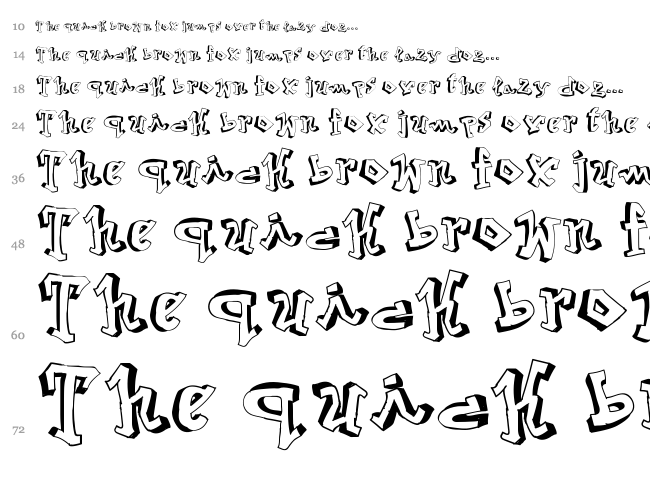 10 The quick brown fox jumps over the lazy dog...
14 The quick brown fox jumps over the lazy dog...
18 The quick brown fox jumps over the lazy dog...
24 The quick brown fox jumps over the
36 The quick brown fox jum
48 The quick brown f
60 The quick bro
72 The quick b